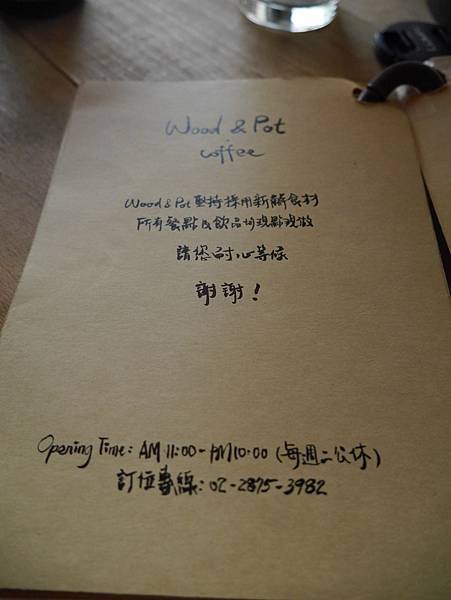 Wood & Pot
coffee
Wood & Pot 堅持採用新鮮食材
所有餐點及飲品均現點現做
請您耐心等候
謝謝！
Opening Time: AM 11:00 - PM 10:00 (每週二公休)
訂位專線: 02-2875-3982